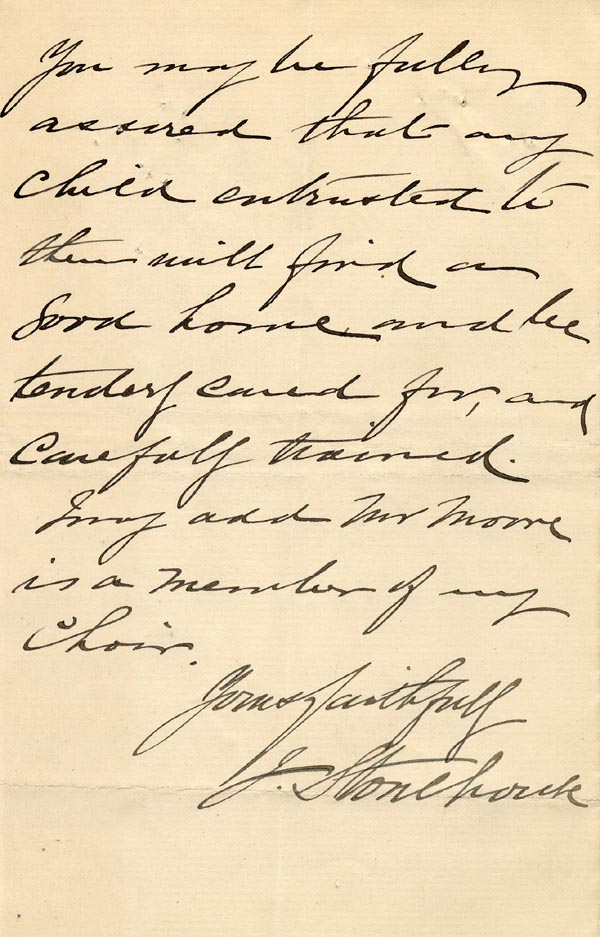 You may be fully
assured that any
child entrusted to
them will find a
good home and be
tenderly cared for, and
carefully trained.
I may add Mr Moore
is a member of my
Choir.
Yours faithfully
J. Stonehouse